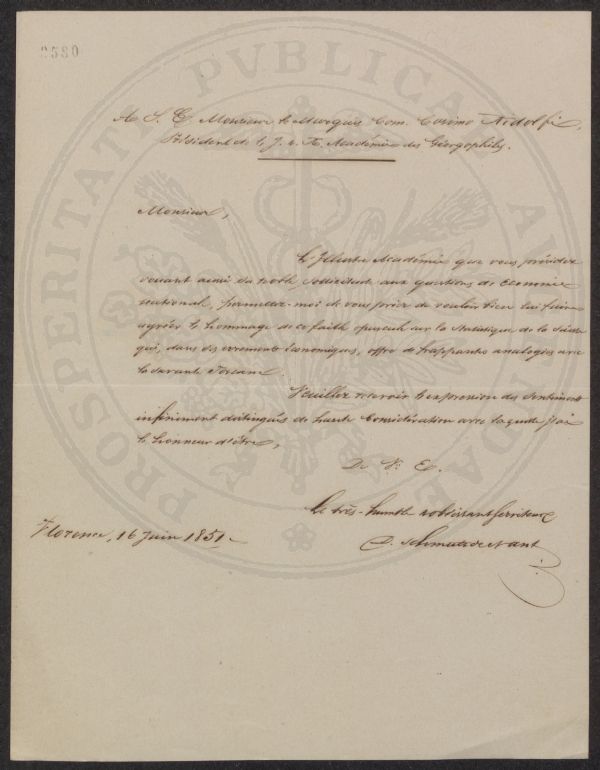 2530
PROSPERITATI PVBLICAE AVGENDAE
A S. E. Monsieur le Marquis Com. Cosimo Ridolfi,
Président de l'I. e R. Académie des Géorgophiles.
Monsieur,
L'Illustre Académie que vous présidez
vouant aussi sa noble sollicitude aux questions de
national, permettez-moi de vous prier de vouloir bien lui faire
agréer l'hommage de ce faible opuscule sur la Statistique de la
qui, dans ses errements économiques, offre de frappantes analogies avec
la savante Toscane.
Veuillez recevoir l'expression des sentiments
infiniment distingués de haute Considération avec laquelle j'ai
l'honneur d'être,
De V. E.
Le très-humble & obéissant serviteur
Florence, 16 Juin 1851